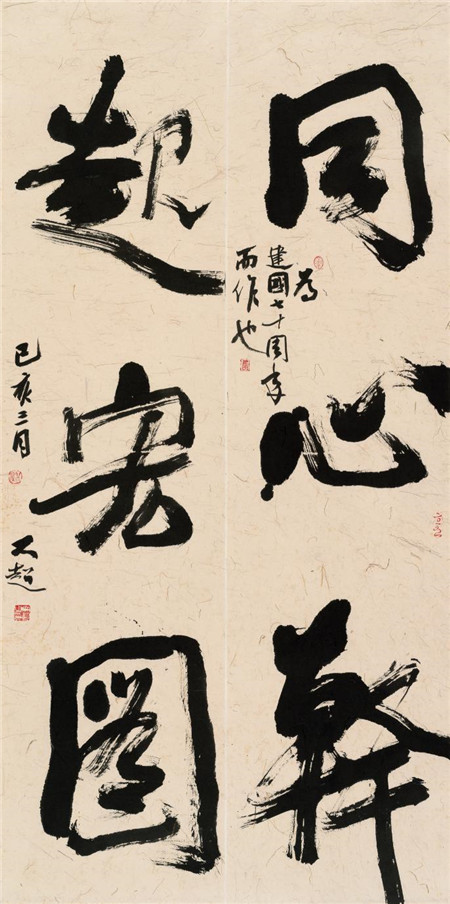 同心幹
起宏圖
為
建國七十周年
而作也
己亥三月